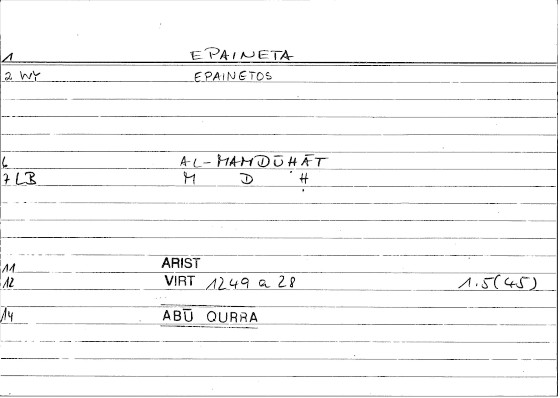 1 EPAINETA
2 WY EPAINETOS
6 AL-MAMDŪḤĀT
7 LB M D Ḥ
11 ARIST
12 VIRT 1249 a 28 1.5(45)
14 ABŪ QURRA